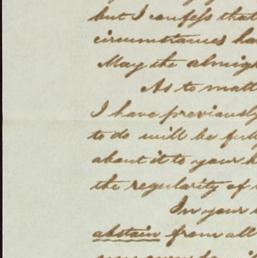 but I confess that
circumstances ha
May the almigh
As to matt
I have previously
to do will be full
about it to your h
the regularity of
In your
abstain from all